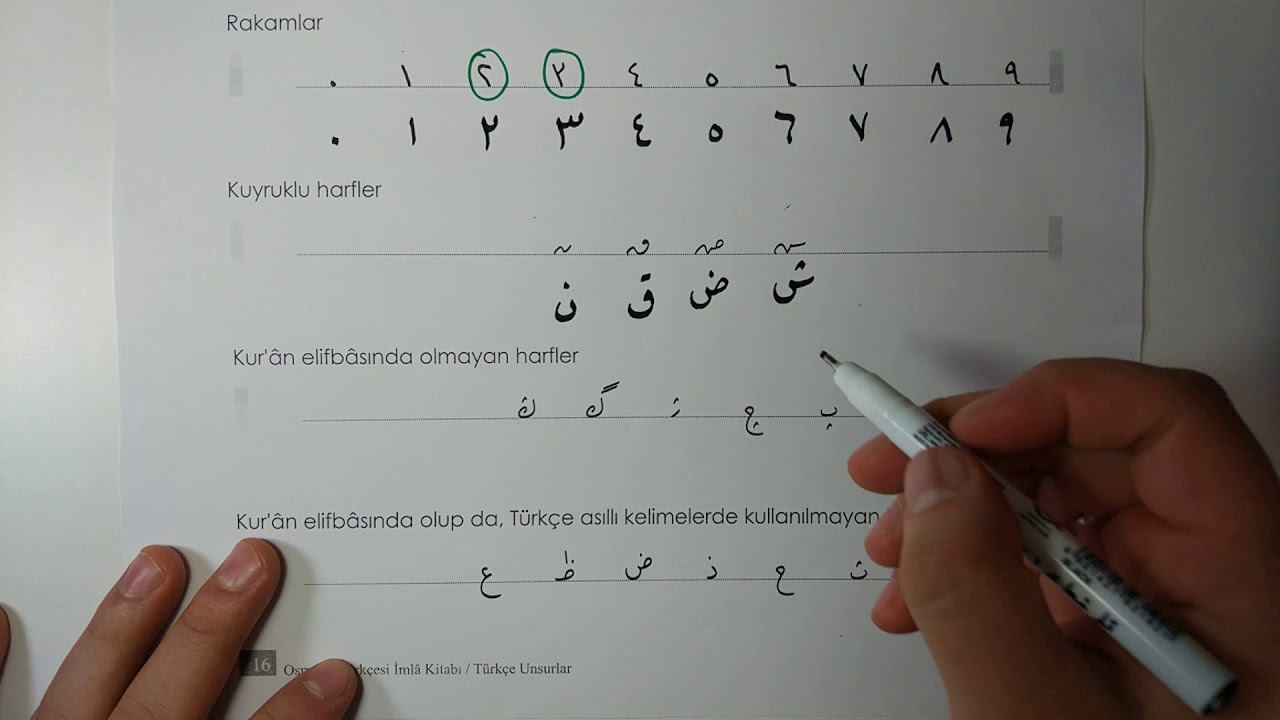 Rakamlar
٠ ١ ٢ ٣ ٤ ٥ ٦ ٧ ٨ ٩
٠ ١ ٢ ٣ ٤ ٥ ٦ ٧ ٨ ٩
Kuyruklu harfler
ش ض ق ن
ش ض ق ن
Kur'ân elifbâsında olmayan harfler
پ چ ژ گ ڭ
Kur'ân elifbâsında olup da, Türkçe asıllı kelimelerde kullanılmayan
ث ح ذ ض ظ ع
16 İmlâ Kitabı / Türkçe Unsurlar